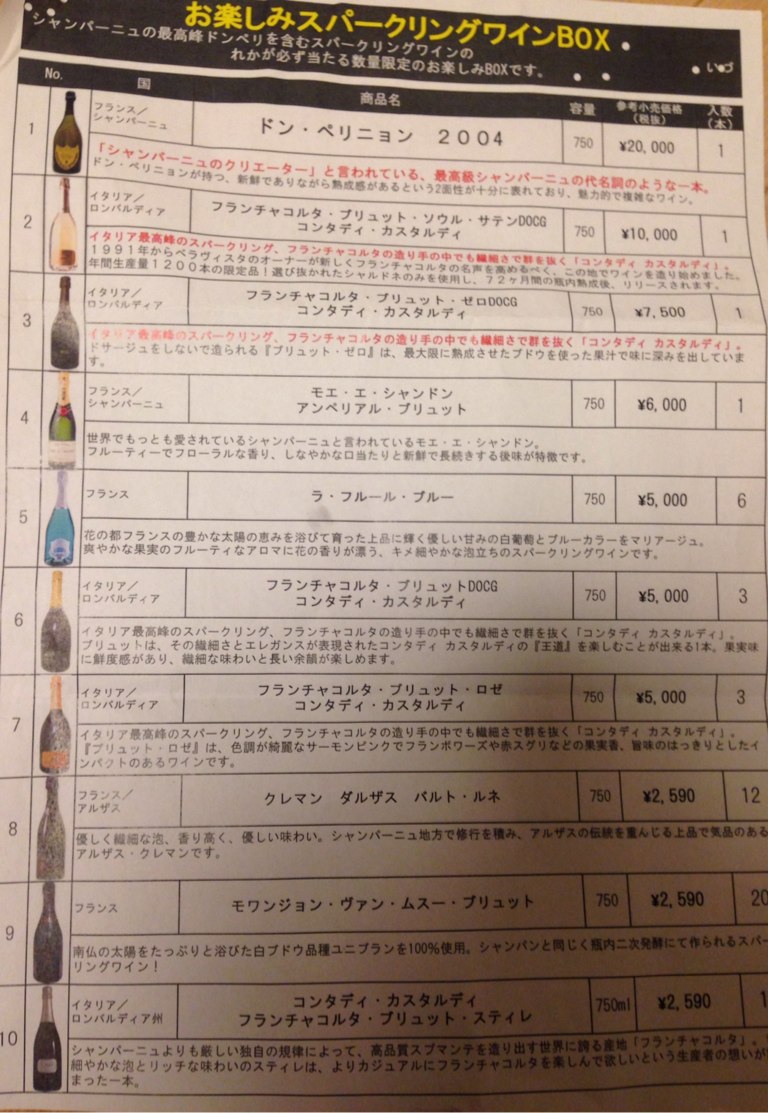 お楽しみスパークリングワインBOX
シャンパーニュの最高峰ドンペリを含むスパークリングワインの いづ
れかが必ず当たる数量限定のお楽しみBOXです。
No. 国 商品名 容量 参考小売価格(税抜) 入数(本)
1 フランス/シャンパーニュ ドン・ペリニョン 2004 750 ¥20,000 1
「シャンパーニュのクリエーター」と言われている、最高級シャンパーニュの代名詞のような一本。
ドン・ペリニョンが持つ、新鮮でありながら熟成感があるという2面性が十分に表れており、魅力的で複雑なワイン。
2 イタリア/ロンバルディア フランチャコルタ・ブリュット・ソウル・サテンDOCG
コンタディ・カスタルディ 750 ¥10,000 1
イタリア最高峰のスパークリング、フランチャコルタの造り手の中でも繊細さで群を抜く「コンタディ カスタルディ」。
1991年からベラヴィスタのオーナーが新しくフランチャコルタの名声を高めるべく、この地でワインを造り始めました。
年間生産量1200本の限定品！選び抜かれたシャルドネのみを使用し、72ヶ月間の瓶内熟成後、リリースされます。
3 イタリア/ロンバルディア フランチャコルタ・ブリュット・ゼロDOCG
コンタディ・カスタルディ 750 ¥7,500 1
イタリア最高峰のスパークリング、フランチャコルタの造り手の中でも繊細さで群を抜く「コンタディ カスタルディ」。
ドサージュをしないで造られる『ブリュット・ゼロ』は、最大限に熟成させたブドウを使った果汁で味に深みを出していま
す。
4 フランス/シャンパーニュ モエ・エ・シャンドン
アンペリアル・ブリュット 750 ¥6,000 1
世界でもっとも愛されているシャンパーニュと言われているモエ・エ・シャンドン。
フルーティーでフローラルな香り、しなやかな口当たりと新鮮で長続きする後味が特徴です。
5 フランス ラ・フルール・ブルー 750 ¥5,000 6
花の都フランスの豊かな太陽の恵みを浴びて育った上品に輝く優しい甘みの白葡萄とブルーカラーをマリアージュ。
爽やかな果実のフルーティなアロマに花の香りが漂う、キメ細やかな泡立ちのスパークリングワインです。
6 イタリア/ロンバルディア フランチャコルタ・ブリュットDOCG
コンタディ・カスタルディ 750 ¥5,000 3
イタリア最高峰のスパークリング、フランチャコルタの造り手の中でも繊細さで群を抜く「コンタディ カスタルディ」。
ブリュットは、その繊細さとエレガンスが表現されたコンタディ カスタルディの『王道』を楽しむことが出来る1本。果実味
に鮮度感があり、繊細な味わいと長い余韻が楽しめます。
7 イタリア/ロンバルディア フランチャコルタ・ブリュット・ロゼ
コンタディ・カスタルディ 750 ¥5,000 3
イタリア最高峰のスパークリング、フランチャコルタの造り手の中でも繊細さで群を抜く「コンタディ カスタルディ」。
『ブリュット・ロゼ』は、色調が綺麗なサーモンピンクでフランボワーズや赤スグリなどの果実香、旨味のはっきりとしたイ
ンパクトのあるワインです。
8 フランス/アルザス クレマン ダルザス バルト・ルネ 750 ¥2,590 12
優しく繊細な泡、香り高く、優しい味わい。シャンパーニュ地方で修行を積み、アルザスの伝統を重んじる上品で気品のある
アルザス・クレマンです。
9 フランス モワンジョン・ヴァン・ムスー・ブリュット 750 ¥2,590 20
南仏の太陽をたっぷりと浴びた白ブドウ品種ユニブランを100%使用。シャンパンと同じく瓶内二次発酵にて作られるスパー
リングワイン！
10 イタリア/ロンバルディア州 コンタディ・カスタルディ
フランチャコルタ・ブリュット・スティレ 750ml ¥2,590 1
シャンパーニュよりも厳しい独自の規律によって、高品質スプマンテを造り出す世界に誇る産地「フランチャコルタ」。
細やかな泡とリッチな味わいのスティレは、よりカジュアルにフランチャコルタを楽しんで欲しいという生産者の想いが
まった一本。